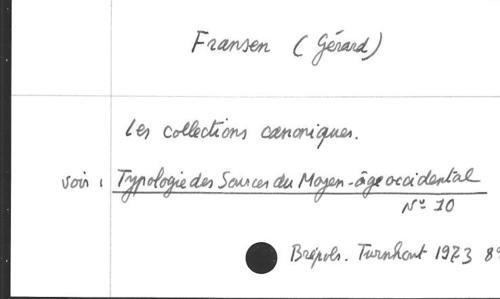 Fransen (Gérard)
Les collections canoniques.
voir : Typologie des Sources du Moyen-âge occidental
N° 10
Brépols. Turnhout 1973 8°